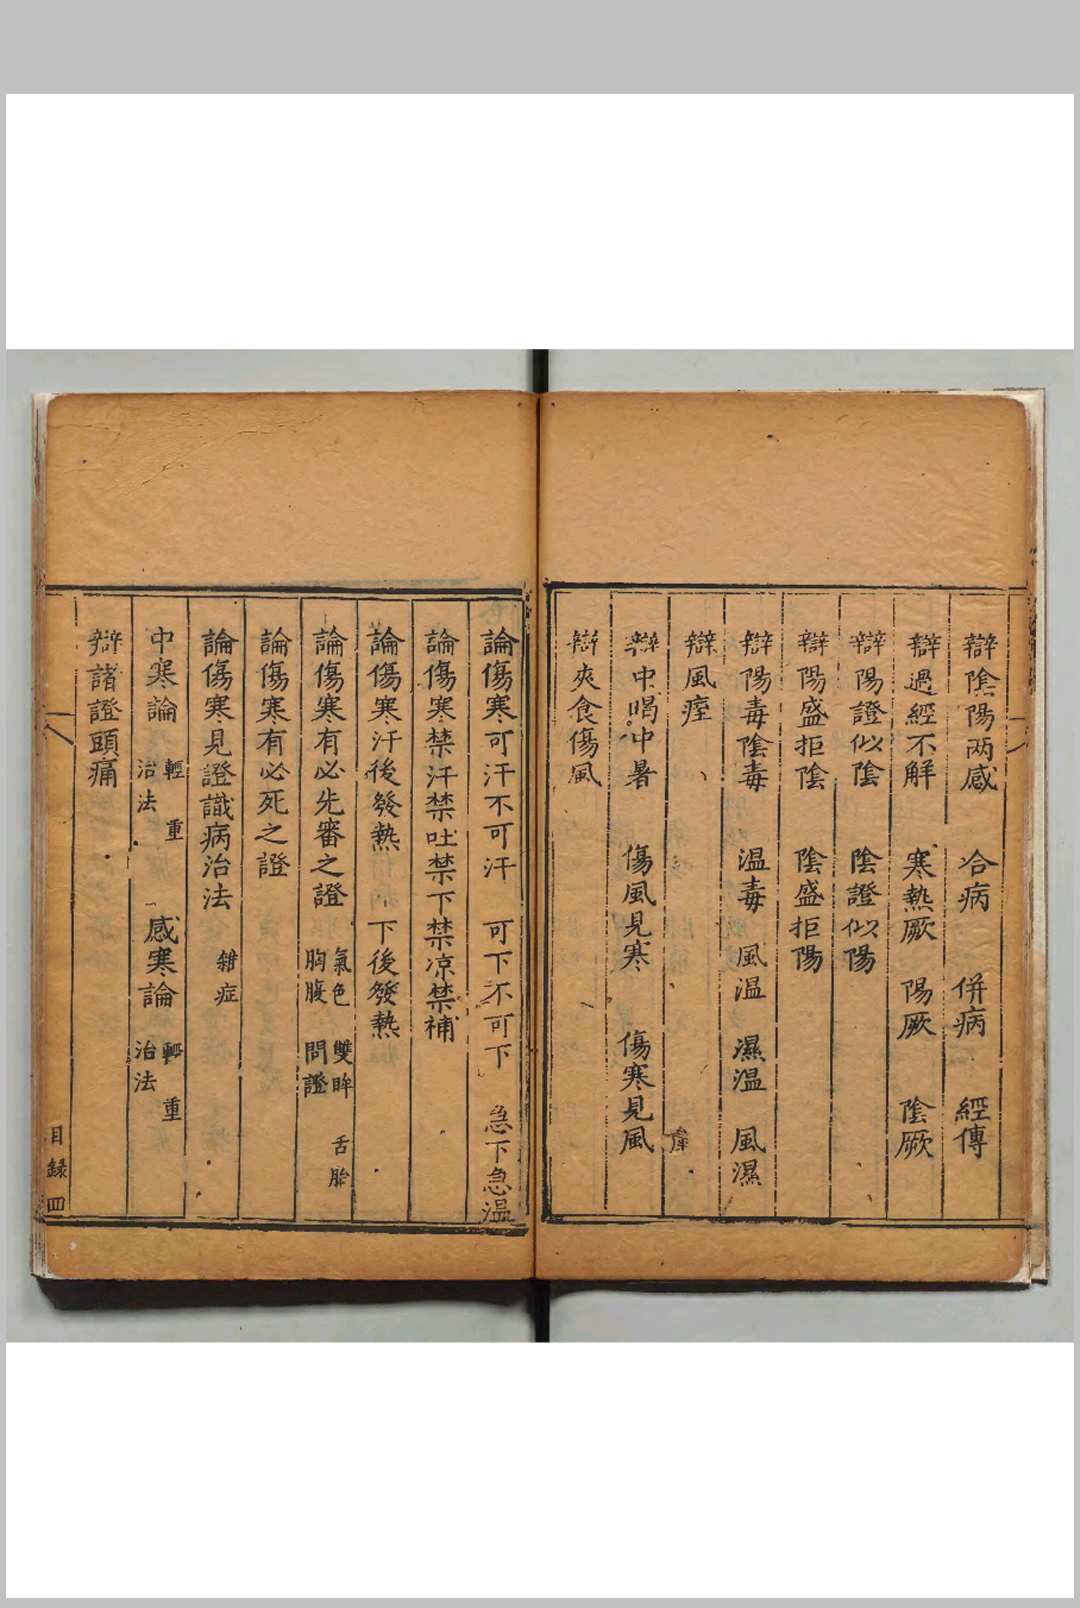 辯陰陽两感　合病　併病　經傳
辯過經不解　寒熱厥　陽厥　陰厥
辯陽證似陰　陰證似陽
辯陽盛拒陰　陰盛拒陽
辯陽毒陰毒　温毒　風温　濕温　風濕
辯風痓
辯中暍中暑　傷風見寒　傷寒見風
辯夾食傷風
論傷寒可汗不可汗　可下不可下　急下急温
論傷寒禁汗禁吐禁下禁凉禁補
論傷寒汗後發熱　下後發熱
論傷寒有必先審之證　氣色　雙眸　舌胎　胸腹　問證
論傷寒有必死之證
論傷寒見證識病治法　雜症
中寒論　輕　重　治法　感寒論　輕　重　治法
辯諸證頭痛
目録四